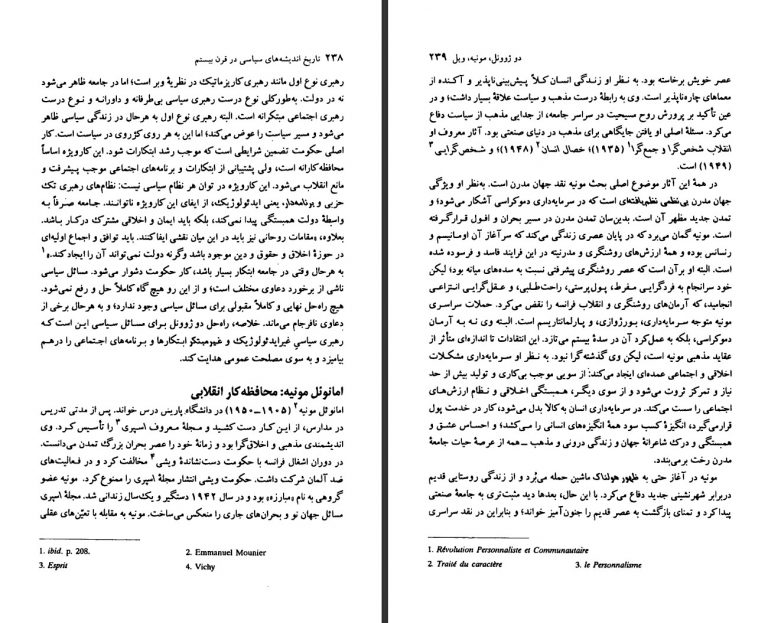 ۲۳۸ تاریخ اندیشه‌های سیاسی در قرن بیستم
رهبری نوع اول مانند رهبری کاریزماتیک در نظریهٔ وبر است؛ اما در جامعه ظاهر می‌شود
نه در دولت. به‌طورکلی نوع درست رهبری سیاسی بی‌طرفانه و داورانه و نوع درست
رهبری اجتماعی مبتکرانه است. البته رهبری نوع اول به هرحال در زندگی سیاسی ظاهر
می‌شود و مسیر سیاست را عوض می‌کند؛ اما این به هر روی کژروی در سیاست است. کار
اصلی حکومت تضمین شرایطی است که موجب رشد ابتکارات شود. این کارویژه اساساً
محافظه‌کارانه است، ولی پشتیبانی از ابتکارات و برنامه‌های اجتماعی موجب پیشرفت و
مانع انقلاب می‌شود. این کارویژه در توان هر نظام سیاسی نیست: نظام‌های رهبری تک
حزبی و برنامه‌دار، یعنی ایدئولوژیک، از ایفای این کارویژه ناتوانند. جامعه صرفاً به
واسطهٔ دولت همبستگی پیدا نمی‌کند، بلکه باید ایمان و اخلاقی مشترک درکار باشد.
بعلاوه، «مقامات روحانی نیز باید در این میان نقشی ایفا کنند. باید توافق و اجماع اولیه‌ای
در حوزهٔ اخلاق و حقوق و دین موجود باشد وگرنه دولت نمی‌تواند آن را ایجاد کند.»۱
به هرحال وقتی در جامعه ابتکار بسیار باشد، کار حکومت دشوار می‌شود. مسائل سیاسی
ناشی از برخورد دعاوی مختلف است؛ و از این رو هیچ گاه کاملاً حل و رفع نمی‌شود.
هیچ راه‌حل نهایی و کاملاً مقبولی برای مسائل سیاسی وجود ندارد؛ و به هرحال برخی از
دعاوی نافرجام می‌ماند. خلاصه، راه‌حل دو ژوونل برای مسائل سیاسی این است که
رهبری سیاسی غیرایدئولوژیک و غیرمبتکر ابتکارها و برنامه‌های اجتماعی را درهم
بیامیزد و به سوی مصلحت عمومی هدایت کند.
امانوئل مونیه: محافظه‌کار انقلابی
امانوئل مونیه۲ (۱۹۰۵–۱۹۵۰) در دانشگاه پاریس درس خواند. پس از مدتی تدریس
در مدارس، از این کار دست کشید و مجلهٔ معروف اسپری۳ را تأسیس کرد. وی
اندیشمندی مذهبی و اخلاق‌گرا بود و زمانهٔ خود را عصر بحران بزرگ تمدن می‌دانست.
در دوران اشغال فرانسه با حکومت دست‌نشاندهٔ ویشی۴ مخالفت کرد و در فعالیت‌های
ضد آلمان شرکت داشت. حکومت ویشی انتشار مجلهٔ اسپری را ممنوع کرد. مونیه عضو
گروهی به نام «مبارزه» بود و در سال ۱۹۴۲ دستگیر و یک‌سال زندانی شد. مجلهٔ اسپری
مسائل جهان نو و بحران‌های جاری را منعکس می‌ساخت. مونیه به مقابله با تعیّن‌های عقلی
1. ibid. p. 208.
2. Emmanuel Mounier
3. Esprit
4. Vichy
دو ژوونل، مونیه، ویل ۲۳۹
عصر خویش برخاسته بود. به نظر او زندگی انسان کلاً پیش‌بینی‌ناپذیر و آکنده از
معماهای چاره‌ناپذیر است. وی به رابطهٔ درست مذهب و سیاست علاقهٔ بسیار داشت؛ و در
عین تأکید بر پرورش روح مسیحیت در سراسر جامعه، از جدایی مذهب از سیاست دفاع
می‌کرد. مسئلهٔ اصلی او یافتن جایگاهی برای مذهب در دنیای صنعتی بود. آثار معروف او
انقلاب شخص‌گرا و جمع‌گرا۱ (۱۹۳۵)؛ خصال انسان۲ (۱۹۴۸)؛ و شخص‌گرایی۳
(۱۹۴۹) است.
در همهٔ این آثار موضوع اصلی بحث مونیه نقد جهان مدرن است. به‌نظر او ویژگی
جهان مدرن بی‌نظمی نظم‌یافته‌ای است که در سرمایه‌داری و دموکراسی آشکار می‌شود؛ و
تمدن جدید مظهر آن است. بدین‌سان تمدن مدرن در مسیر بحران و افول قرارگرفته
است. مونیه گمان می‌برد که در پایان عصری زندگی می‌کند که سرآغاز آن اومانیسم و
رنسانس بوده و همهٔ ارزش‌های روشنگری و مدرنیته در این فرایند فاسد و فرسوده شده
است. البته او برآن است که عصر روشنگری پیشرفتی نسبت به سده‌های میانه بود؛ لیکن
خود سرانجام به فردگرایی مفرط، پول‌پرستی، راحت‌طلبی، و عقل‌گرایی انتزاعی
انجامید، که آرمان‌های روشنگری و انقلاب فرانسه را نقض می‌کرد. حملات سراسری
مونیه متوجه سرمایه‌داری، بورژوازی، و پارلمانتاریسم است. البته وی نه به آرمان
دموکراسی، بلکه به عمل‌کرد آن در سدهٔ بیستم می‌تازد. این انتقادات تا اندازه‌ای متأثر از
عقاید مذهبی مونیه است، لیکن وی گذشته‌گرا نبود. به نظر او سرمایه‌داری مشکلات
اخلاقی و اجتماعی عمده‌ای ایجاد می‌کند: از سویی موجب بی‌کاری و تولید بیش از حد
نیاز و تمرکز ثروت می‌شود و از سوی دیگر، همبستگی اخلاقی و نظام ارزش‌های
اجتماعی را سست می‌کند. در سرمایه‌داری انسان به کالا بدل می‌شود، کار در خدمت پول
قرار می‌گیرد، انگیزهٔ کسب سود همهٔ انگیزه‌های انسانی را می‌کشد؛ و احساس عشق و
همبستگی و درک شاعرانهٔ جهان و زندگی درونی و مذهب ــ همه از عرصهٔ حیات جامعهٔ
مدرن رخت برمی‌بندد.
مونیه در آغاز حتی به ظهور هولناک ماشین حمله می‌بُرد و از زندگی روستایی قدیم
دربرابر شهرنشینی جدید دفاع می‌کرد. با این حال، بعدها دید مثبت‌تری به جامعهٔ صنعتی
پیدا کرد و تمنای بازگشت به عصر قدیم را جنون‌آمیز خواند؛ و بنابراین در نقد سراسری
1. Révolution Personnaliste et Communautaire
2. Traité du caractère
3. le Personnalisme